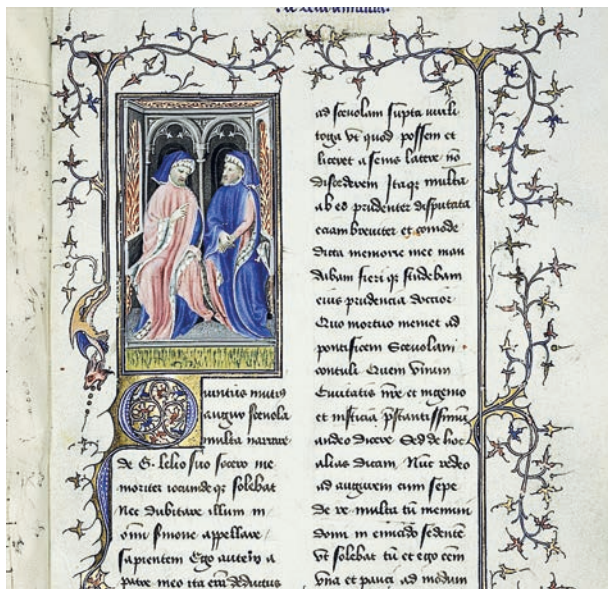 Quintus mutius
augur scevola
multa narrare
de G. lelio suo socero me
moriter iocunde q; solebat
Nec dubitare illum in
omi smone appellare
sapientem Ego autem a
patre meo ita erā deductus
ad scevolam supta virili
toga vt quod possem et
liceret a senis latere nō
discederem Itaque multa
ab eo prudenter disputata
etiam breviter et comode
dicta memorie mee man
dabam fieri q; studebam
eius prudencia doctior
Quo mortuo memet ad
pontificem Scevolam
contuli Quem vnum
Civitatis nrē et ingenio
et iusticia pstantissimū
audeo dicere Sed de hoc
alias dicam Nūc redeo
ad augurem cum sepe
de re multa tū memini
domi in emiciclo sedentē
vt solebat tū et ego eēm
vna et pauci ad modum